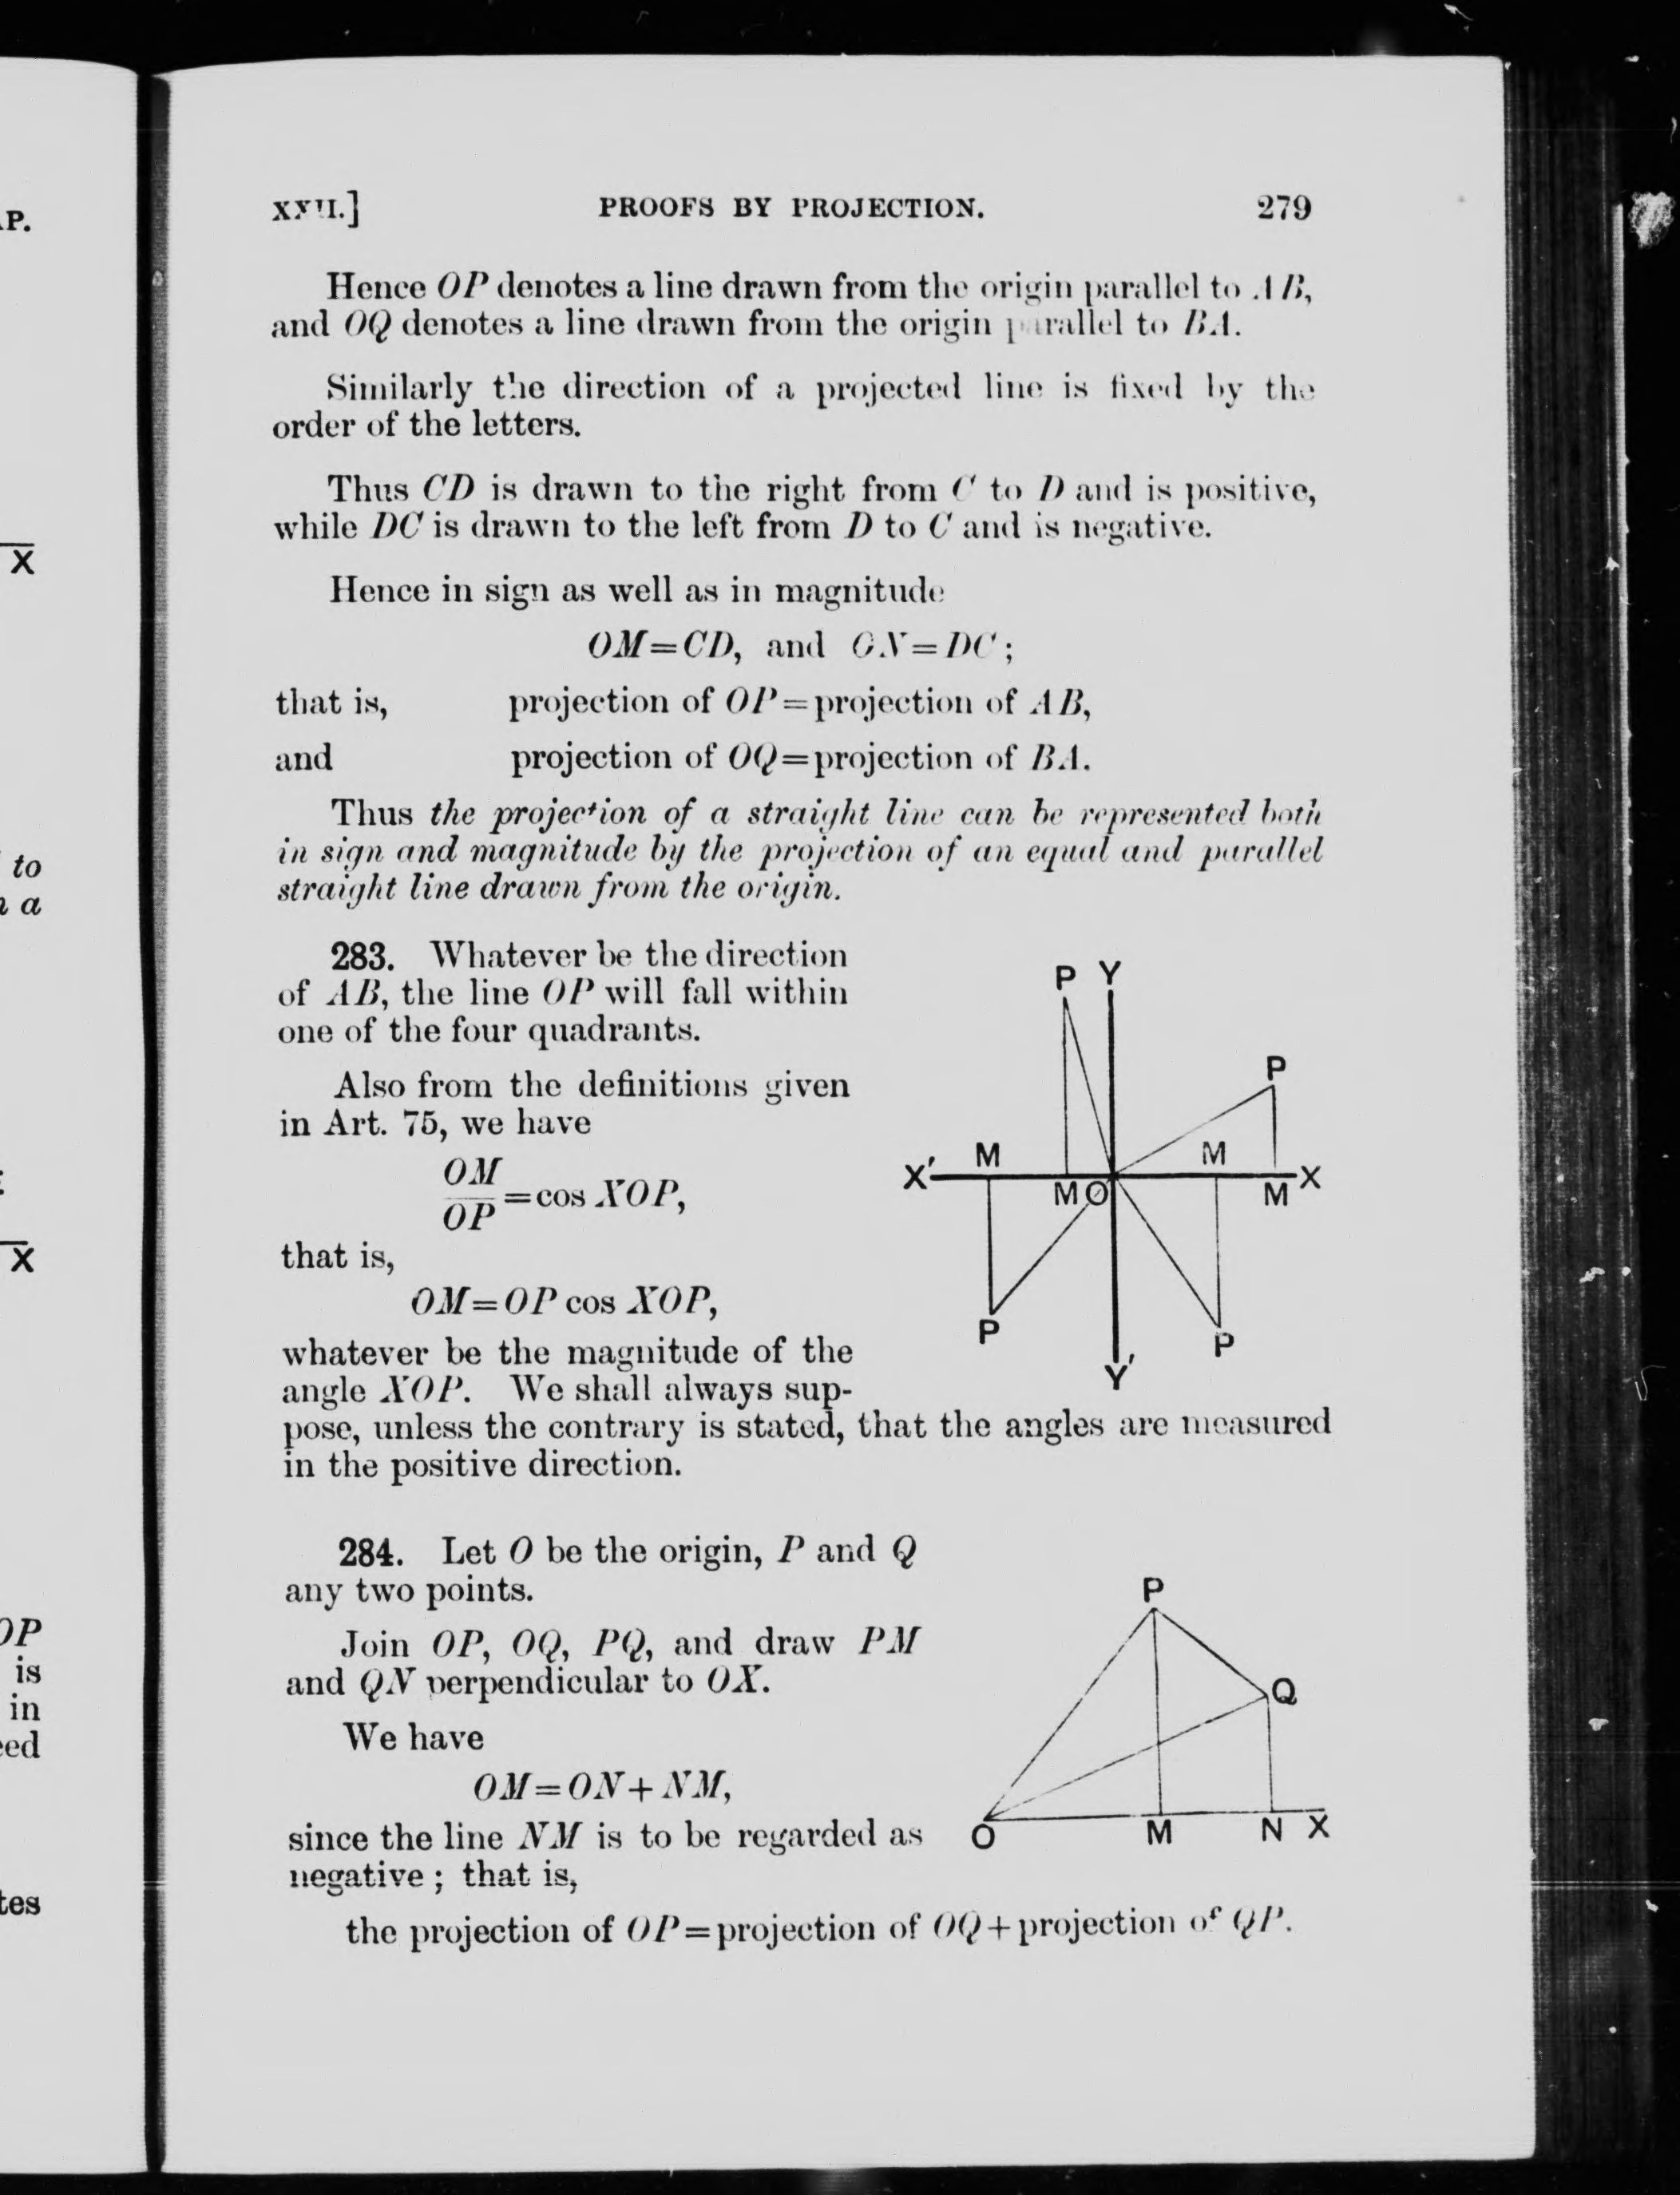 XXVII.] PROOFS BY PROJECTION. 279
Hence OP denotes a line drawn from the origin parallel to AB,
and OQ denotes a line drawn from the origin parallel to BA.
Similarly the direction of a projected line is fixed by the
order of the letters.
Thus CD is drawn to the right from C to D and is positive,
while DC is drawn to the left from D to C and is negative.
Hence in sign as well as in magnitude
OM=CD, and ON=DC;
that is, projection of OP=projection of AB,
and projection of OQ=projection of BA.
Thus the projection of a straight line can be represented both
in sign and magnitude by the projection of an equal and parallel
straight line drawn from the origin.
283. Whatever be the direction
of AB, the line OP will fall within
one of the four quadrants.
Also from the definitions given
in Art. 75, we have
OM
OP =cos XOP,
that is,
OM=OP cos XOP,
whatever be the magnitude of the
angle XOP. We shall always sup-
pose, unless the contrary is stated, that the angles are measured
in the positive direction.
P Y
P
X′ M M X
M O M
P P
Y′
284. Let O be the origin, P and Q
any two points.
Join OP, OQ, PQ, and draw PM
and QN perpendicular to OX.
We have
OM=ON+NM,
since the line NM is to be regarded as
negative; that is,
the projection of OP=projection of OQ+projection of QP.
P
Q
O M N X
P.
X
to
a
X
OP
is
in
ed
tes